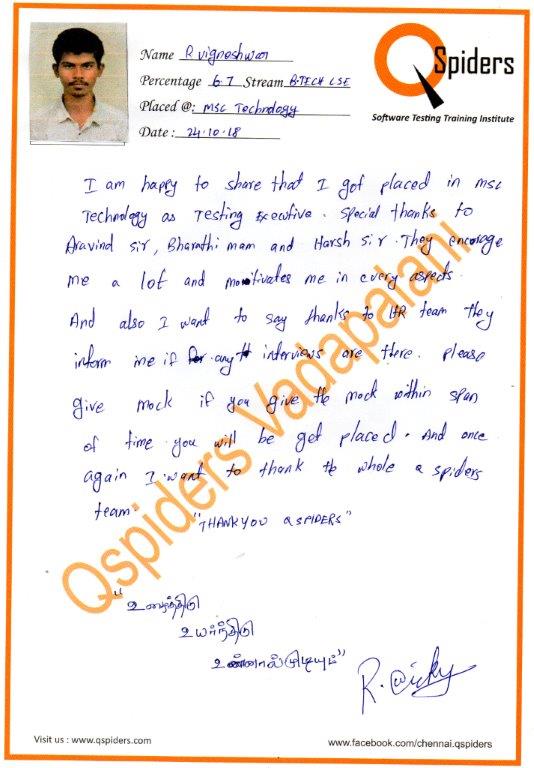 Name R vigneshwar
Percentage 67 Stream B.TECH CSE
Placed @: MSC Technology
Date : 24.10.18
QSpiders
Software Testing Training Institute
I am happy to share that I got placed in msc
Technology as Testing Executive. Special thanks to
Aravind sir, Bharathi mam and Harsh sir. They encorage
me a lot and motivates me in every aspects.
And also I want to say thanks to HR team they
inform me if any interviews are there. please
give mock if you give the mock within span
of time you will be get placed. And once
again I want to thank the whole Q spiders
team.
"THANKYOU QSPIDERS"
Qspiders Vadapalani
"உழைத்திடு
உயர்ந்திடு
உன்னால் முடியும்"
Visit us : www.qspiders.com
www.facebook.com/chennai.qspiders